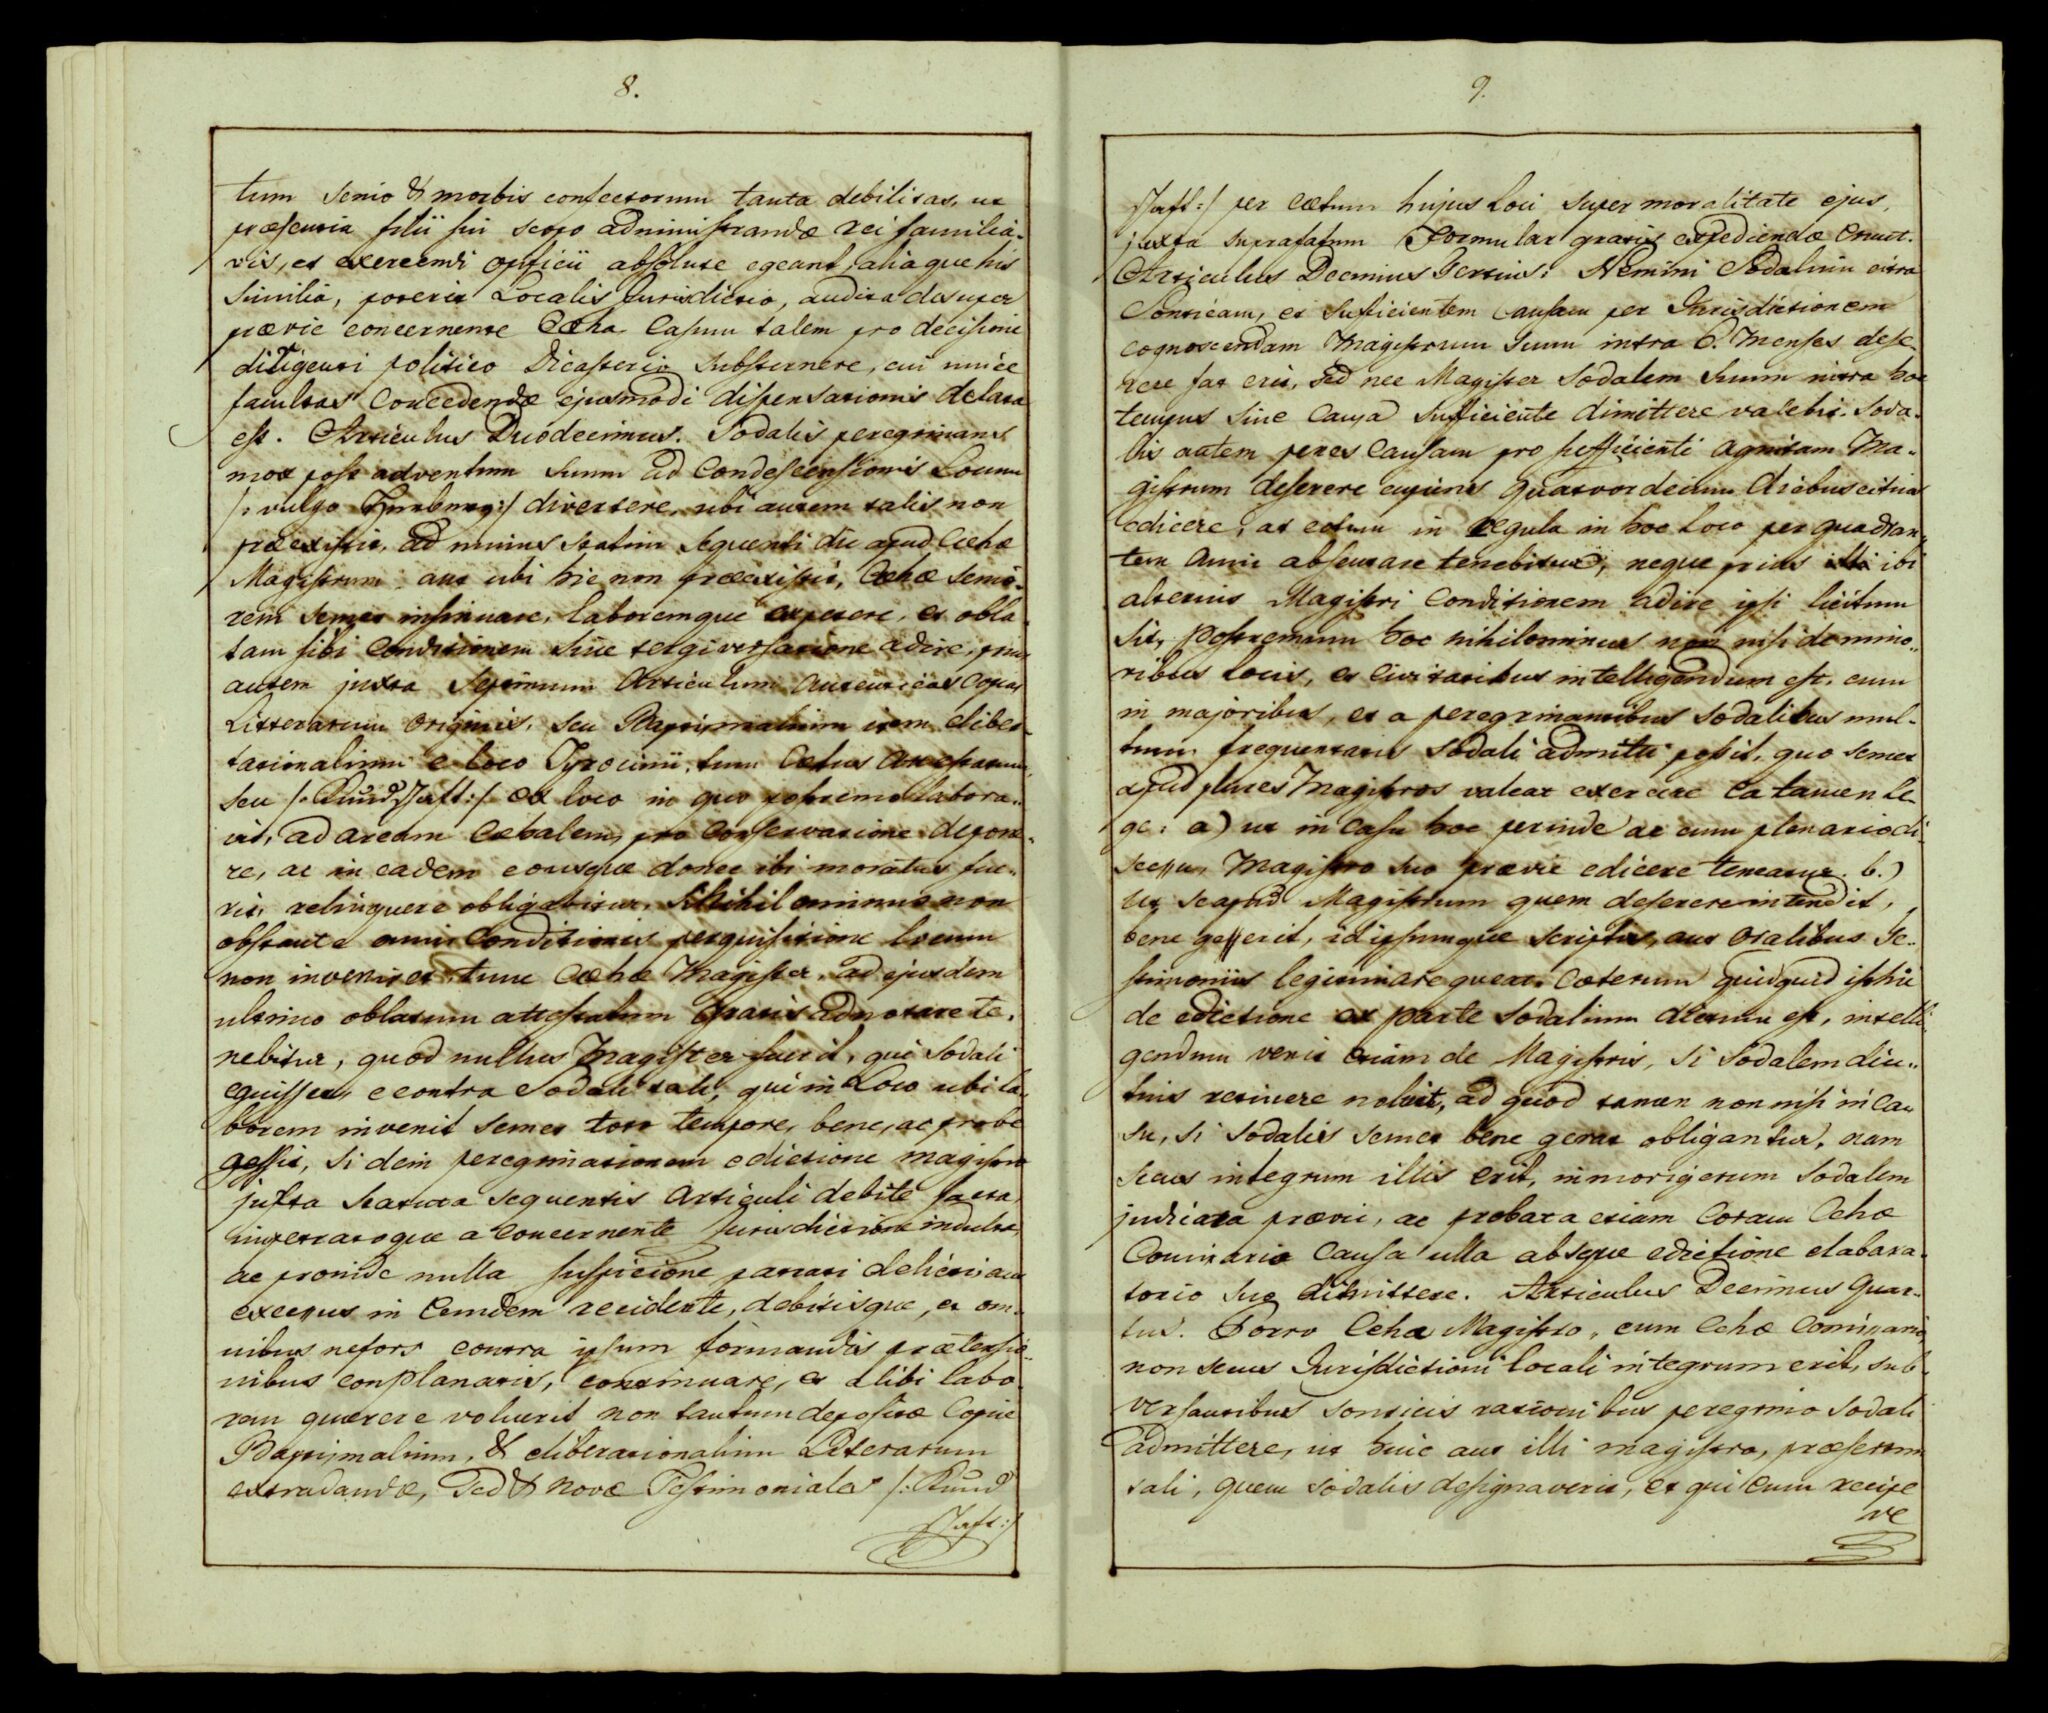 8.
tum senio & morbis confectorum tanta debilitas, ut
præsentia filii sui scopo administrandæ rei familia-
ris, et exercendi opificii absolute egeant, aliaque his
similia, poterit Localis Jurisdictio, audita desuper
prævie concernente Cæha Casum talem pro decisione
diligenti politico Dicasterio substernere, cui unice
facultas Concedendæ ejusmodi dispensationis delata
est. Articulus Duodecimus. Sodalis peregrinans
mox post adventum suum ad Condescensionis Locum
/: vulgo :/ divertere, ubi autem talis non
præexistit, ad minus statim sequenti die apud Cæhæ
Magistrum aut ubi hic non præexistit, Cæhæ senio-
rem semet insinuare, laboremque expetere, et obla-
tam sibi Conditionem sine tergiversatione adire,
autem juxta Septimum Articulum Authenticas Copias
Litterarum Originis, seu Baptismalium item eliber-
tationalium e loco Tyrocinii, tum Cætus Attestatum
seu /: Kund :/ ex loco in quo postremo labora-
vit, ad arcam Cæhalem, pro Conservatione depone-
re, ac in eadem eousque donec ibi moratus fue-
rit, relinquere obligabitur. Nihilominus non
obstante omni Conditionis perquisitione locum
non inveniret tunc Cæhæ Magister, ad ejusdem
ultimo oblatum attestatum Gratis adnotare te-
nebitur, quod nullus Magister fuerit, qui Sodali
eguisset, e contra Sodali tali, qui in Loco ubi la-
borem invenit semet toto tempore, bene, ac probe
gessit, si dein peregrinationem edictione magistro
juxta statuta sequentis Articuli debite facta,
impetratoque a Concernente Jurisdictione indultu,
ac proinde nulla suspicione patrati delicti, aut
excessus in Eundem recidente, debitisque, et om-
nibus nefors contra ipsum formandis prætensio-
nibus complanatis, continuare, et alibi labo-
rem quærere voluerit non tantum depositæ Copiæ
Baptismalium, & eliberationalium Literarum
extradandæ, sed & novæ Testimoniales /: Kund
:/
9.
:/ per cætum hujus loci super moralitate ejus,
juxta supradatum Formular gratis expediendæ erunt.
Articulus Decimus Tertius: Nemini Sodalium citra
Sonticam, et sufficientem Causam per Jurisdictionem
cognoscendam Magistrum suum intra 6. Menses dese-
rere fas erit, sed nec Magister sodalem suum intra hoc
tempus sine Causa sufficiente dimittere valebit. Soda-
lis autem penes Causam pro sufficienti agnitam Ma-
gistrum deserere cupiens quatuordecim diebus citius
edicere, ac totum in regula in hoc loco per quadran-
tem Anni absentare tenebitur, neque prius ibi
alterius Magistri Conditionem adire ipsi licitum
sit, postremum hoc nihilominus non nisi de mino-
ribus locis, et Civitatibus intelligendum est, cum
in majoribus, et a peregrinantibus sodalibus mul-
tum frequentatis sodali admitti possit, quo semet
apud plures Magistros valeat exercere ea tamen le-
ge: a) ut in Casu hoc perinde ac cum plenario di-
scessu, Magistro suo prævie edicere teneatur. b.)
Ut se apud Magistrum quem deserere intendit,
bene gesserit, id ipsumque scriptis, aut oralibus te-
stimoniis legitimare queat. Cæterum quidquid isthic
de edictione ex parte sodalium dictum est, intelli-
gendum venit etiam de Magistris, si Sodalem diu-
tius retinere nolint, ad quod tamen non nisi in Ca-
su, si sodalis semet bene gerat obligantur, nam
secus integrum illis erit, immorigerum sodalem
judicata prævie, ac probata etiam Coram Cehæ
Commissario Causa ulla absque edictione elabora-
torio suo dimittere. Articulus Decimus Quar-
tus. Porro Cehæ Magistro, cum Cehæ Commissario
non secus Jurisdictioni locali integrum erit, sub-
versantibus sonticis rationibus peregrino sodali
admittere, ut huic aut illi magistro, præsertim
tali, quem sodalis designaverit, et qui Eum recipe
re